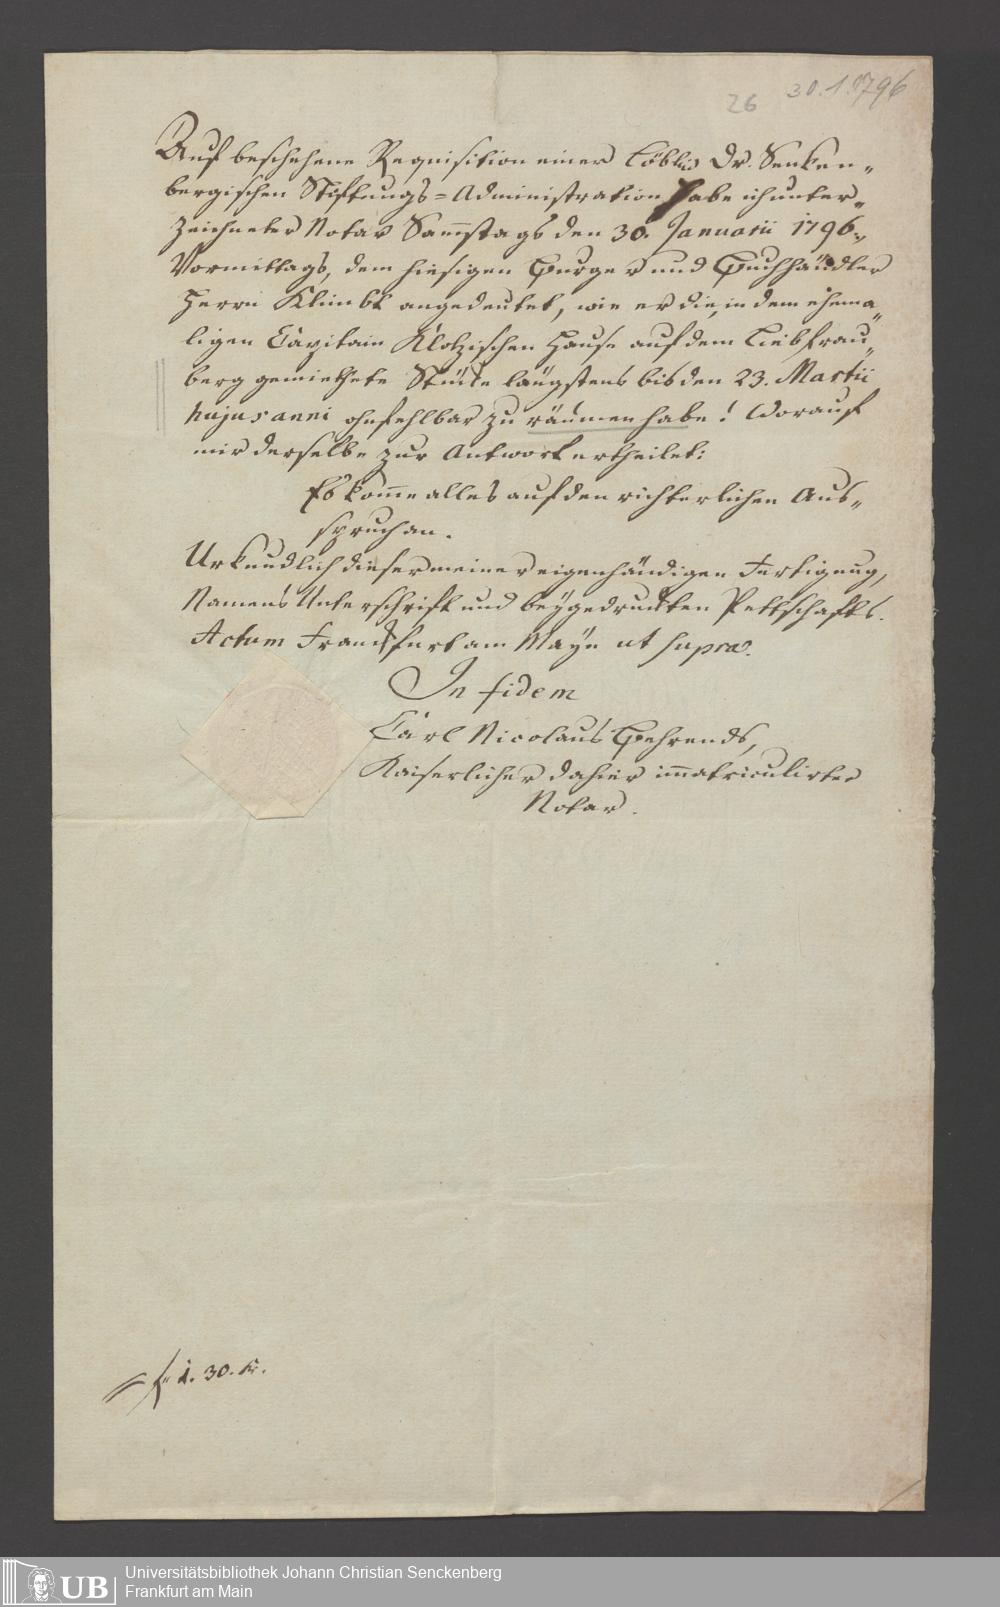 26 30.1.1796
Auf beschehene Requisition einer Löbl. Dr. Senken-
bergischen Stiftungs-Administration habe ich unter-
zeichneter Notar Samstags den 30. Januarii 1796.,
Vormittags, dem hiesigen Burger und Buchhändler
Herrn Klimbt angedeutet, wie er die, in dem ehema-
ligen Capitain Klotzischen Hause auf dem Liebfrau-
berg gemiethete Stücke längstens bis den 23. Martii
hujus anni ohnfehlbar zu räumen habe! Worauf
mir derselbe zur Antwort ertheilet:
Es komme alles auf den richterlichen Aus-
spruch an.
Urkundlich dieser meiner eigenhändigen Fertigung,
Namens Unterschrift und beygedruckten Pettschafts.
Actum Franckfurt am Mayn ut supra.
In fidem
Carl Nicolaus Behrends,
Kaiserlicher dahier immatriculirter
Notar.
f 1. 30. kr.
UB Universitätsbibliothek Johann Christian Senckenberg
Frankfurt am Main